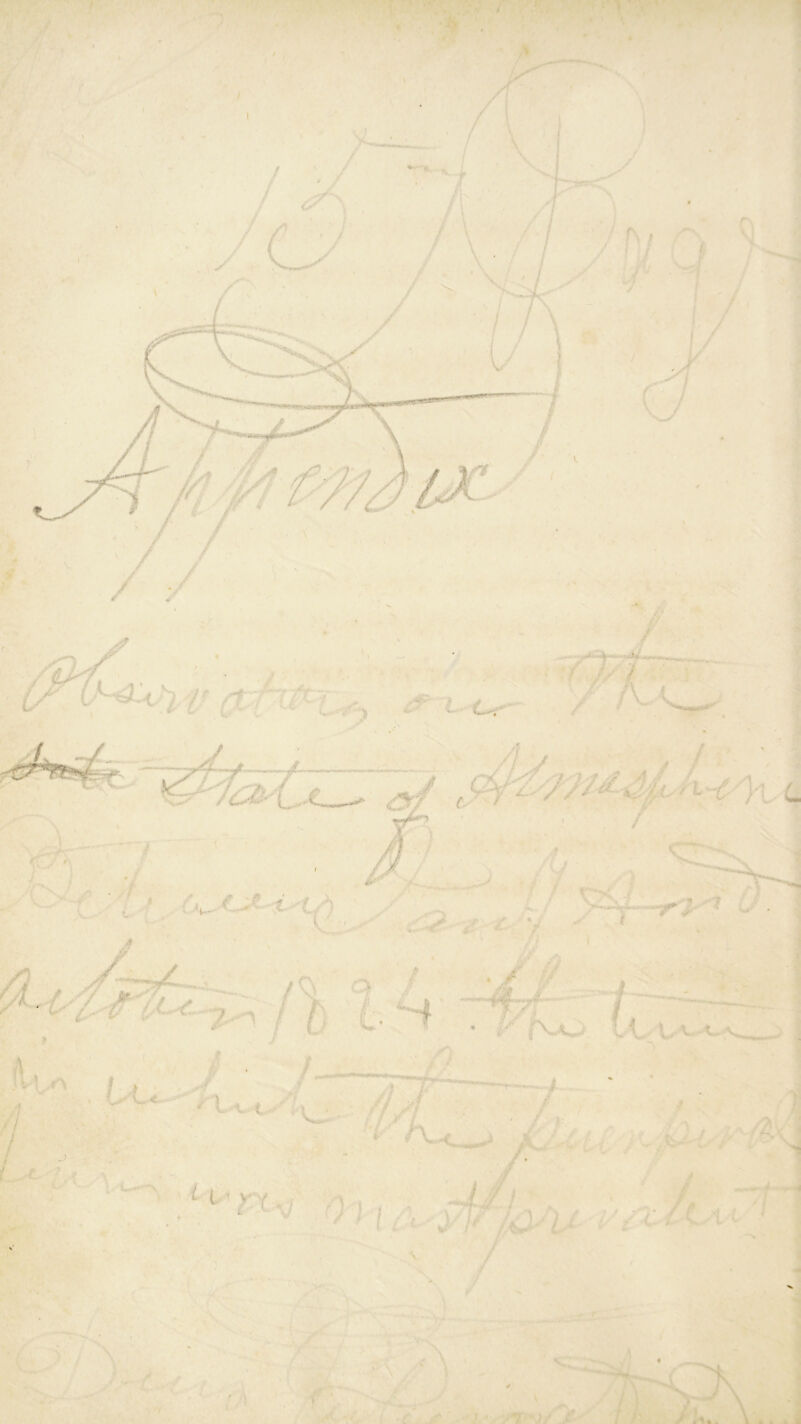 15 Page
Appendix
Observations on the
State State of Atmosphere
Between Jany And
October 1824 . the time
in which the puerperal
fever was most prevalent